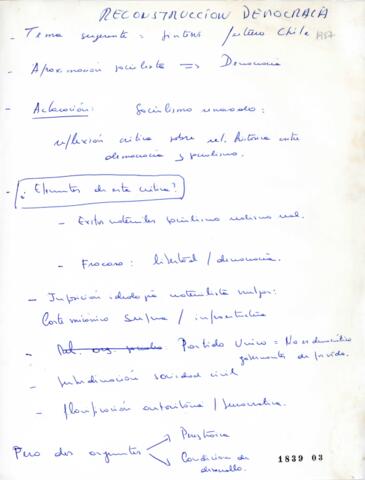 RECONSTRUCCION DEMOCRACIA
- Tema sugerente = futuro Chile 1987
- Aproximación socialista => Democracia
- Aclaración: Socialismo renovado:
reflexión crítica sobre rel. histórica entre
democracia y socialismo.
- ¿Elementos de esta crítica?
- Exitos materiales socialismo real.
- Fracaso: libertad / democracia.
- Imposición ideología materialista
Corte mecánico Supra / infraestructura
- Partido Unico = No es democrático
- Subordinación sociedad civil
- Planificación autoritaria / burocrática.
Pero dos argumentos
Perestroica
Condiciones de
desarrollo.
1839 03